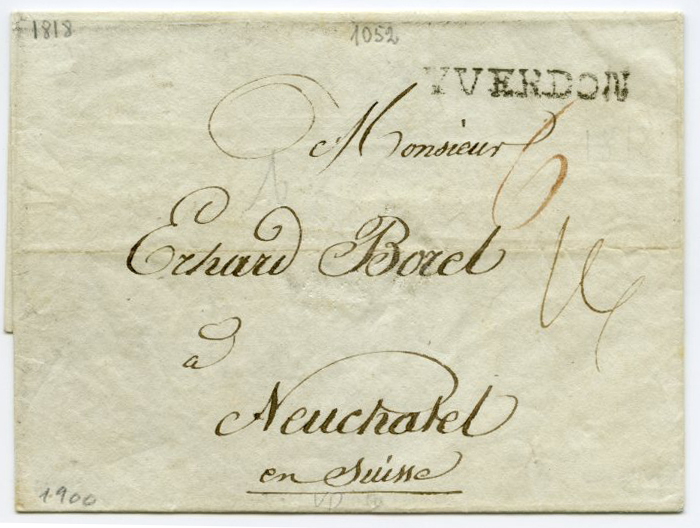 1818
1052
YVERDON
Monsieur
6
Erhard Borel
a
Neuchatel
en Suisse
1900